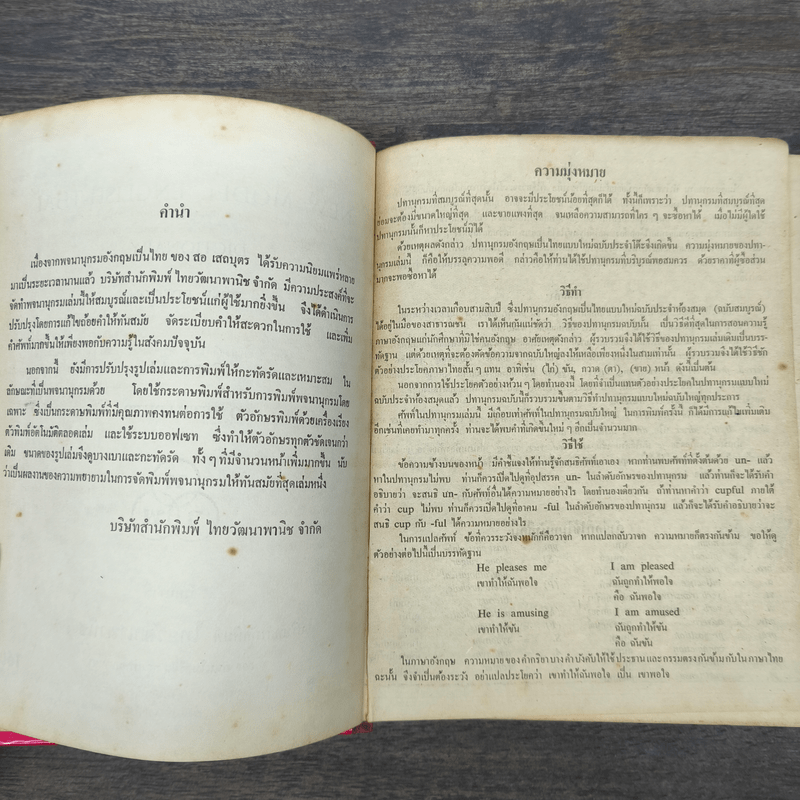 คำนำ
เนื่องจากพจนานุกรมอังกฤษเป็นไทย ของ สอ เสถบุตร ได้รับความนิยมแพร่หลาย
มาเป็นระยะเวลานานแล้ว บริษัทสำนักพิมพ์ ไทยวัฒนาพานิช จำกัด มีความประสงค์ที่จะ
จัดทำพจนานุกรมเล่มนี้ให้สมบูรณ์และเป็นประโยชน์แก่ผู้ใช้มากยิ่งขึ้น จึงได้ดำเนินการ
ปรับปรุงโดยการแก้ไขถ้อยคำให้ทันสมัย จัดระเบียบคำให้สะดวกในการใช้ และเพิ่ม
คำศัพท์มากขึ้นให้เพียงพอกับความรู้ในสังคมปัจจุบัน
นอกจากนี้ ยังมีการปรับปรุงรูปเล่มและการพิมพ์ให้กะทัดรัดและเหมาะสม ใน
ลักษณะที่เป็นพจนานุกรมด้วย โดยใช้กระดาษพิมพ์สำหรับการพิมพ์พจนานุกรมโดย
เฉพาะ ซึ่งเป็นกระดาษพิมพ์ที่มีคุณภาพคงทนต่อการใช้ ตัวอักษรพิมพ์ด้วยเครื่องเรียง
ตัวพิมพ์อัดโนมัติตลอดเล่ม และใช้ระบบออฟเซท ซึ่งทำให้ตัวอักษรทุกตัวชัดเจนกว่า
เดิม ขนาดของรูปเล่มจึงดูบางเบาและกะทัดรัด ทั้งๆ ที่มีจำนวนหน้าเพิ่มมากขึ้น นับ
ว่าเป็นผลงานของความพยายามในการจัดพิมพ์พจนานุกรมให้ทันสมัยที่สุดเล่มหนึ่ง
บริษัทสำนักพิมพ์ ไทยวัฒนาพานิช จำกัด
ความมุ่งหมาย
ปทานุกรมที่สมบูรณ์ที่สุดนั้น อาจจะมีประโยชน์น้อยที่สุดก็ได้ ทั้งนี้ก็เพราะว่า ปทานุกรมที่สมบูรณ์ที่สุด
ย่อมจะต้องมีขนาดใหญ่ที่สุด และขายแพงที่สุด จนเหลือความสามารถที่ใคร ๆ จะซื้อหาได้ เมื่อไม่มีผู้ใดใช้
ปทานุกรมนั้นก็หาประโยชน์มิได้
ด้วยเหตุผลดังกล่าว ปทานุกรมอังกฤษเป็นไทยแบบใหม่ฉบับประจำโต๊ะจึงเกิดขึ้น ความมุ่งหมายของปทา-
นุกรมเล่มนี้ ก็คือให้บรรลุความพอดี กล่าวคือให้ท่านได้ใช้ปทานุกรมที่บริบูรณ์พอสมควร ด้วยราคาที่ผู้ซื้อส่วน
มากจะพอซื้อหาได้
วิธีทำ
ในระหว่างเวลาเกือบสามสิบปี ซึ่งปทานุกรมอังกฤษเป็นไทยแบบใหม่ฉบับประจำห้องสมุด (ฉบับสมบูรณ์)
ได้อยู่ในมือของสาธารณชน เราได้เห็นกันแน่ชัดว่า วิธีของปทานุกรมฉบับนั้น เป็นวิธีดีที่สุดในการสอนความรู้
ภาษาอังกฤษแก่นักศึกษาที่มิใช่คนอังกฤษ อาศัยเหตุดังกล่าว ผู้รวบรวมจึงได้ใช้วิธีของปทานุกรมเล่มเดิมเป็นบรร-
ทัดฐาน แต่ด้วยเหตุที่จะต้องตัดข้อความจากฉบับใหญ่ลงให้เหลือเพียงหนึ่งในสามเท่านั้น ผู้รวบรวมจึงได้ใช้วิธีชัก
ตัวอย่างประโยคภาษาไทยสั้นๆ แทน อาทิเช่น (ไก่) ขัน, กวาด (ตา), (ขาย) หน้า ดังนี้เป็นต้น
นอกจากการใช้ประโยคตัวอย่างห้วน ๆ โดยทำนองนี้ โดยที่จำเป็นแทนตัวอย่างเป็นประโยคในปทานุกรมแบบใหม่
ฉบับประจำห้องสมุดแล้ว ปทานุกรมฉบับนี้ได้รวบรวมขึ้นตามวิธีทำปทานุกรมแบบใหม่ฉบับใหญ่ทุกประการ
ศัพท์ในปทานุกรมเล่มนี้ มีเกือบเท่าศัพท์ในปทานุกรมฉบับใหญ่ ในการพิมพ์ครั้งนี้ ก็ได้มีการแก้ไขเพิ่มเติม
อีกเช่นที่เคยทำมาทุกครั้ง ท่านจะได้พบคำที่เกิดขึ้นใหม่ๆ อีกเป็นจำนวนมาก
วิธีใช้
ข้อความข้างบนของหน้า มีคำชี้แจงให้ท่านรู้จักสนธิศัพท์เอาเอง หากท่านพบศัพท์ที่ตั้งต้นด้วย un- แล้ว
หาในปทานุกรมไม่พบ ท่านก็ควรเปิดไปดูที่อุปสรรค un- ในลำดับอักษรของปทานุกรม แล้วท่านก็จะได้รับคำ
อธิบายว่า จะสนธิ un- กับศัพท์อื่นได้ความหมายอย่างไร โดยทำนองเดียวกัน ถ้าท่านหาคำว่า cupful ภายใต้
คำว่า cup ไม่พบ ท่านก็ควรเปิดไปดูที่อาคม -ful ในลำดับอักษรของปทานุกรม แล้วก็จะได้รับคำอธิบายว่าจะ
สนธิ cup กับ -ful ได้ความหมายอย่างไร
ในการแปลศัพท์ ข้อที่ควรระวังจงหนักก็คือวาจก หากแปลกลับวาจก ความหมายก็ตรงกันข้าม ขอให้ดู
ตัวอย่างต่อไปนี้เป็นบรรทัดฐาน
He pleases me I am pleased
เขาทำให้ฉันพอใจ ฉันถูกทำให้พอใจ
คือ ฉันพอใจ
He is amusing I am amused
เขาทำให้ขัน ฉันถูกทำให้ขัน
คือ ฉันขัน
ในภาษาอังกฤษ ความหมายของคำกริยาบางคำบังคับให้ใช้ประธานและกรรมตรงกันข้ามกับในภาษาไทย
ฉะนั้น จึงจำเป็นต้องระวัง อย่าแปลประโยคว่า เขาทำให้ฉันพอใจ เป็น เขาพอใจ